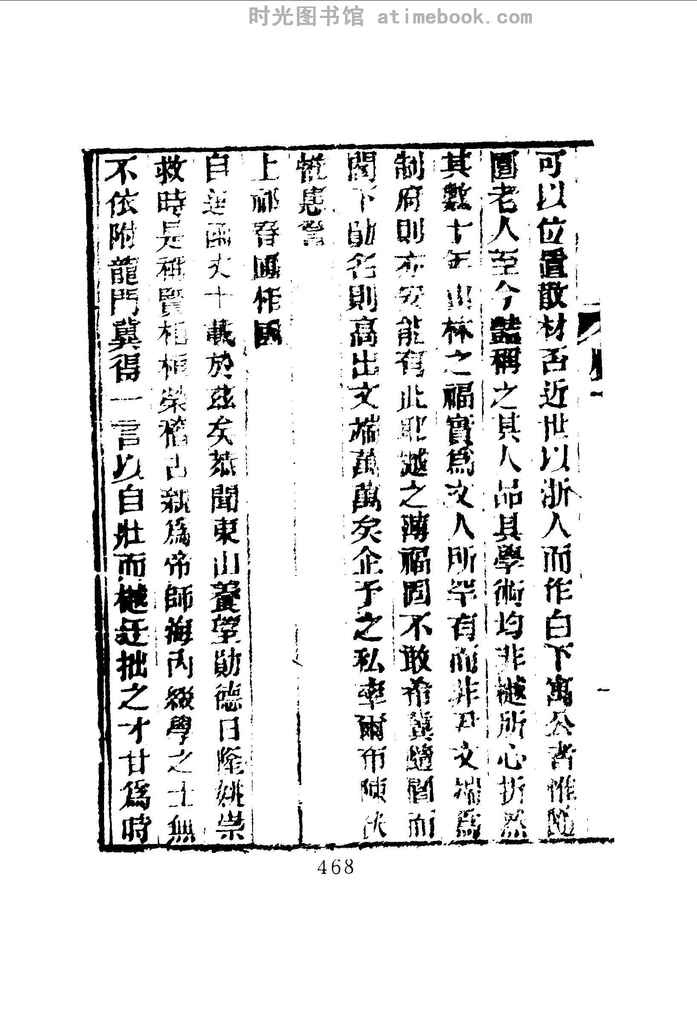 时光图书馆 atimebook.com
可以位置散材否近世以浙人而作白下寓公者惟隨
園老人至今豔稱之其人品其學術均非樾所心折然
其數十年山林之福實爲文人所罕有而非尹文端爲
制府則亦安能有此耶樾之薄福固不敢希冀隨園而
閣下勛名則高出文端萬萬矣企予之私率爾布陳伏
惟惠詧
上祁春圃相國
自違函丈十載於茲矣恭聞東山養望勛德日隆姚崇
救時是稱賢相桓榮稽古親爲帝師海內綴學之士無
不依附龍門冀得一言以自壯而樾迂拙之才甘爲時
468